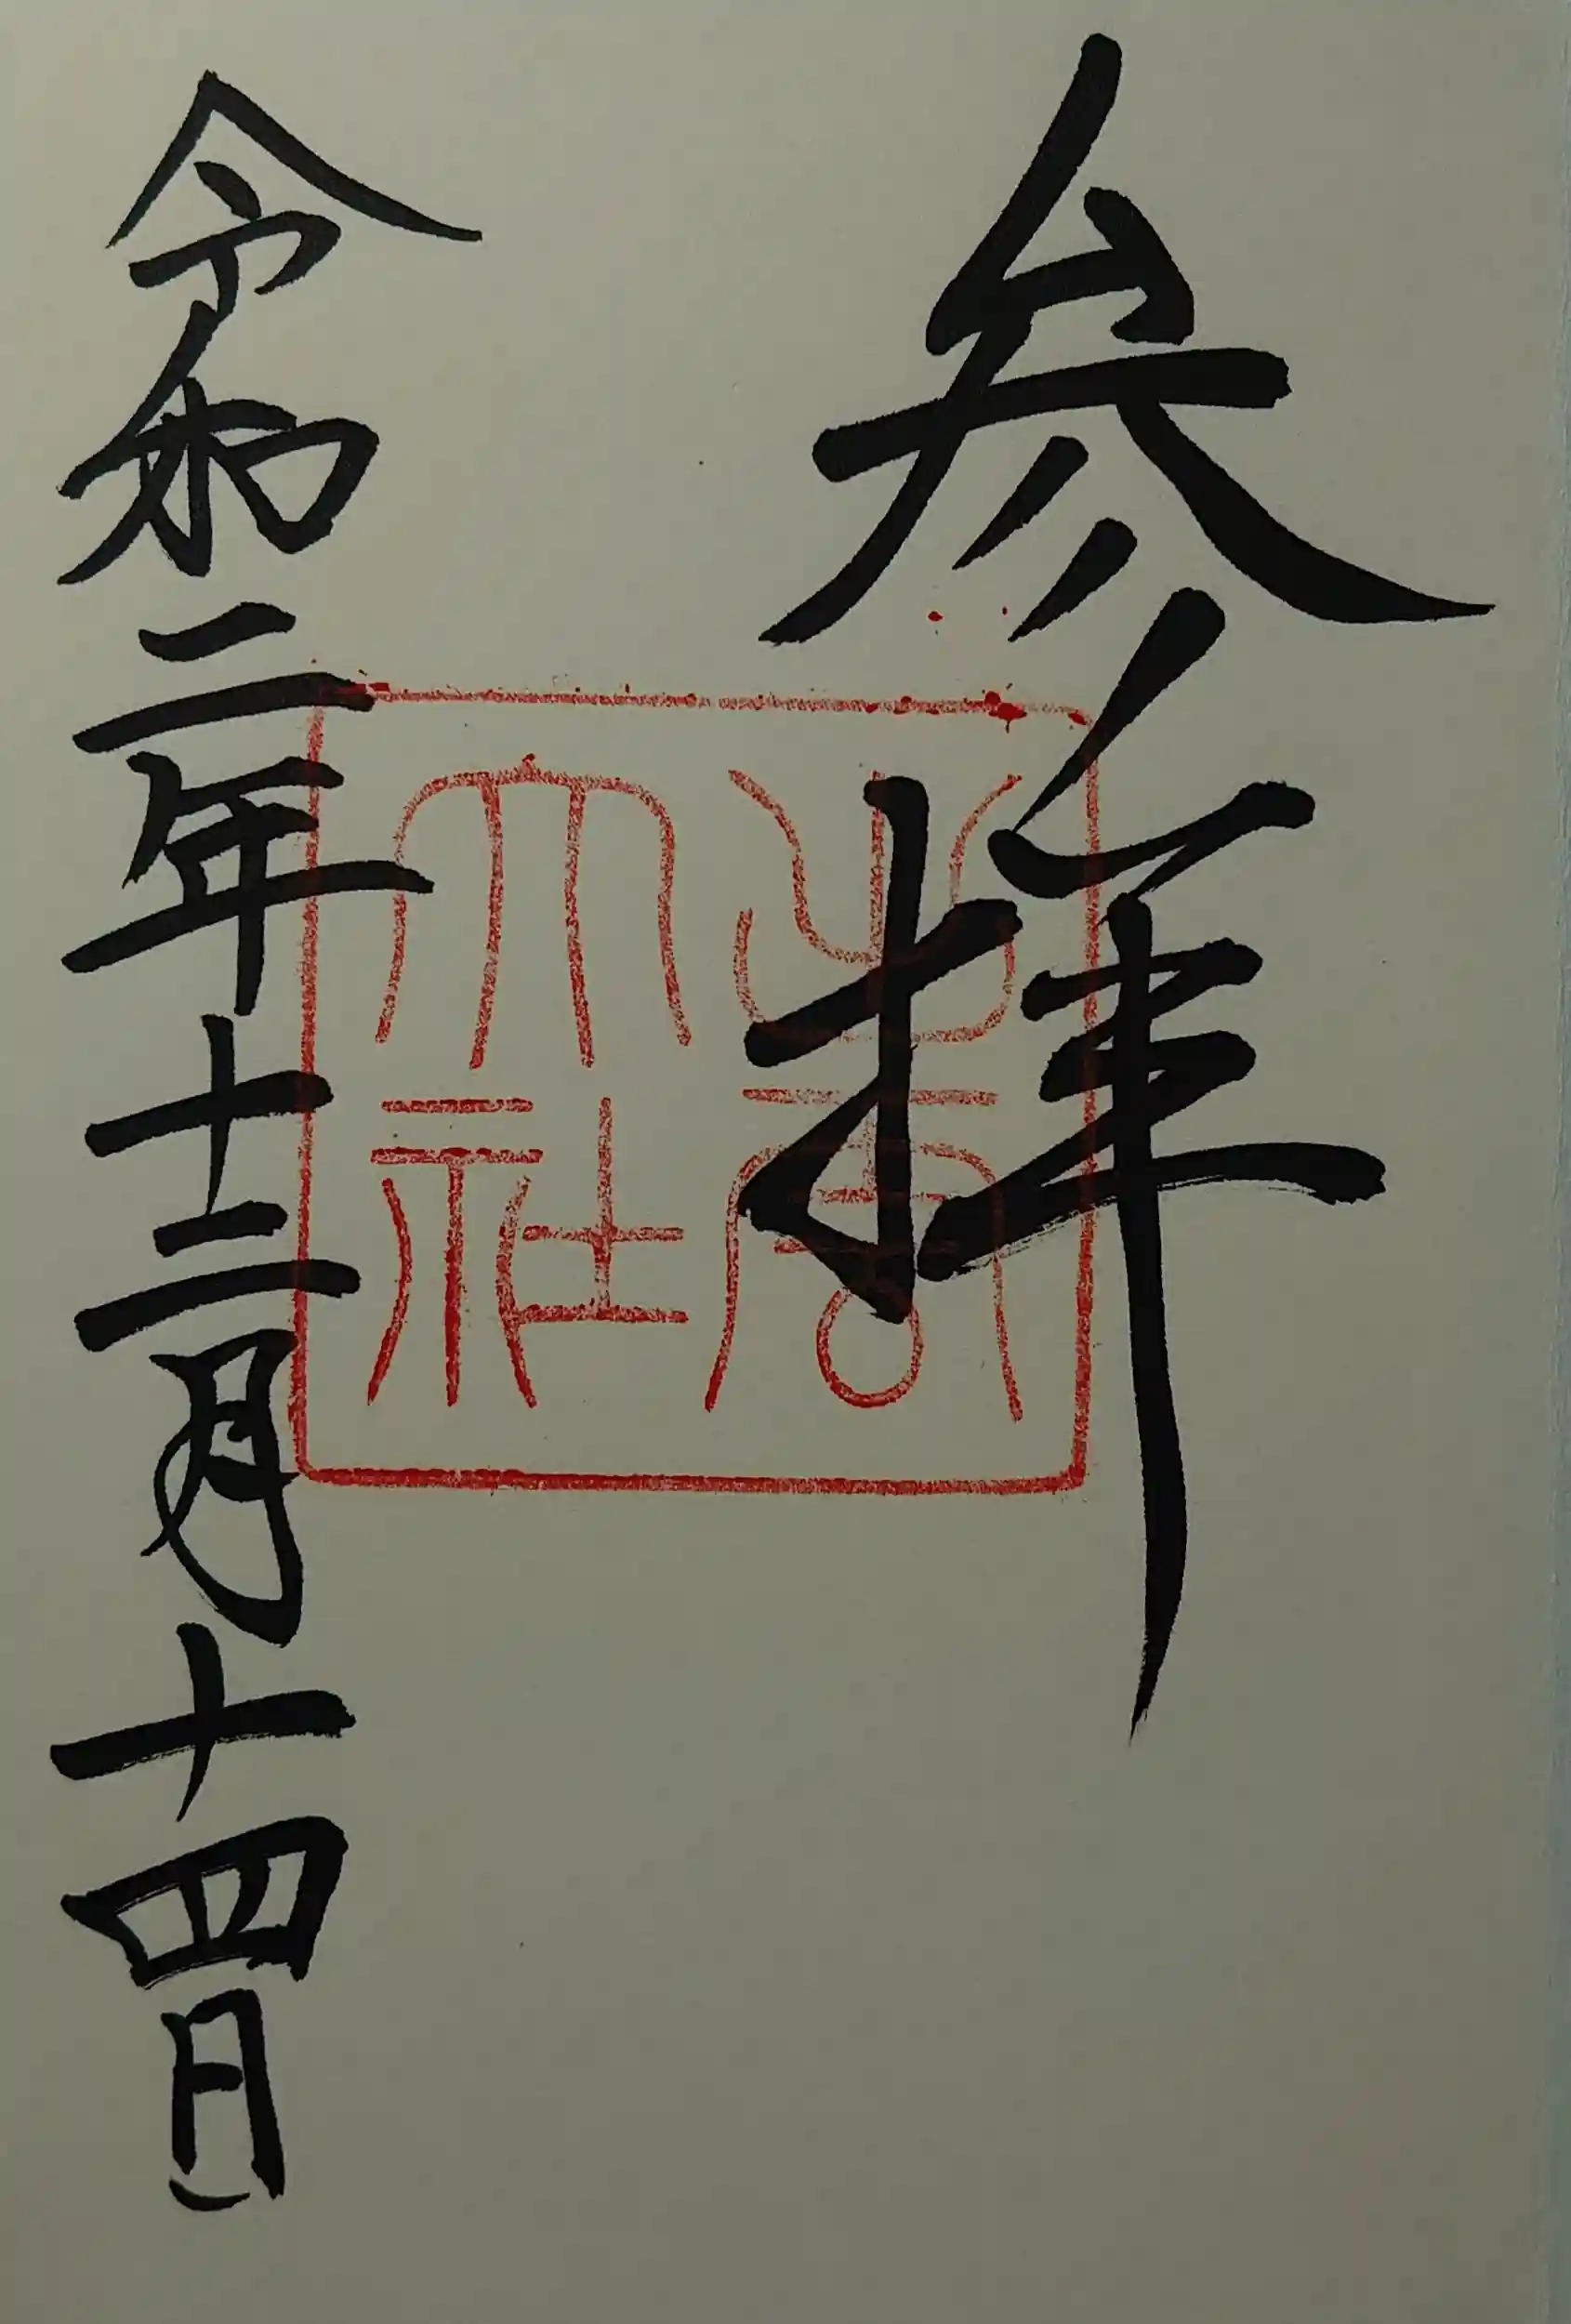 参拝
出雲
大社
令和二年十二月十四日